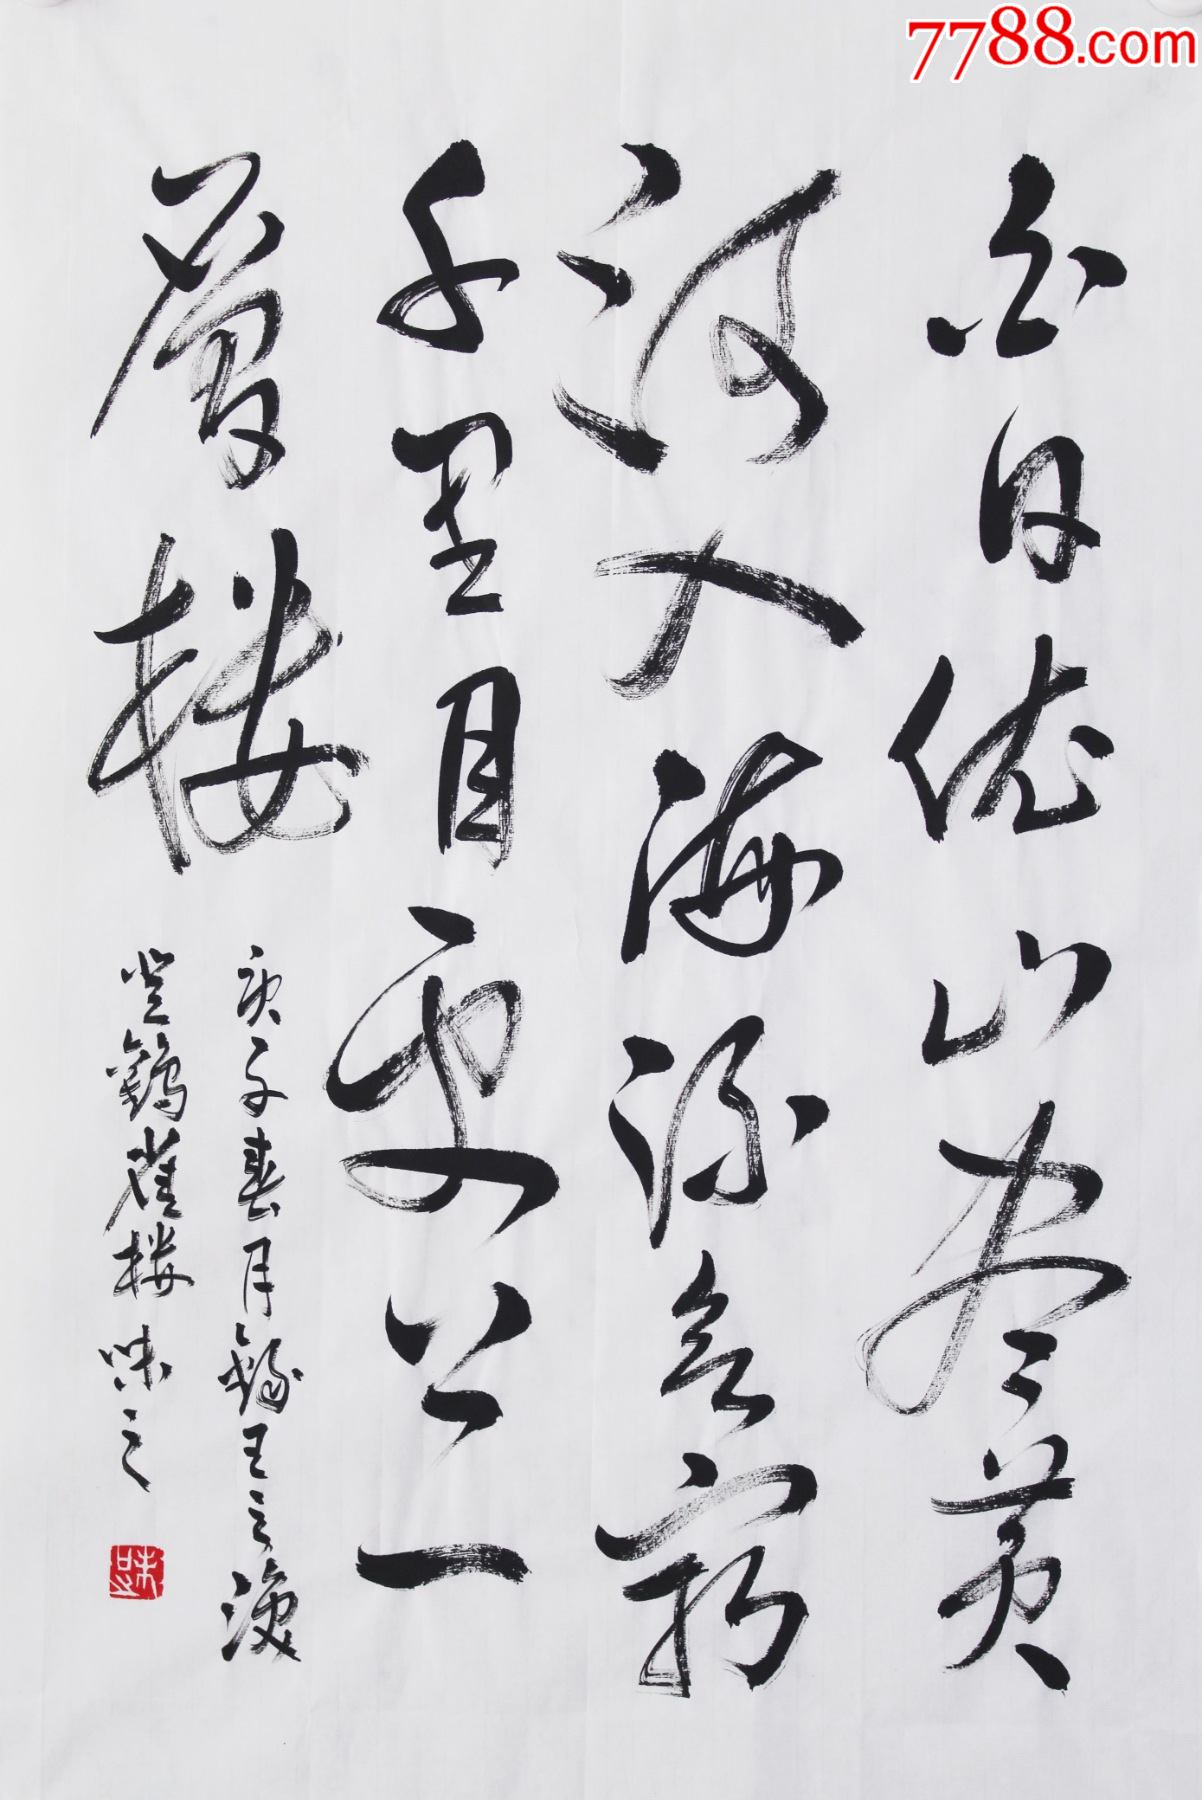 7788.com
白日依山尽黄
河入海流欲窮
千里目更上一
層楼
庚子春月錄王之涣
登鸛雀楼 味之
味之